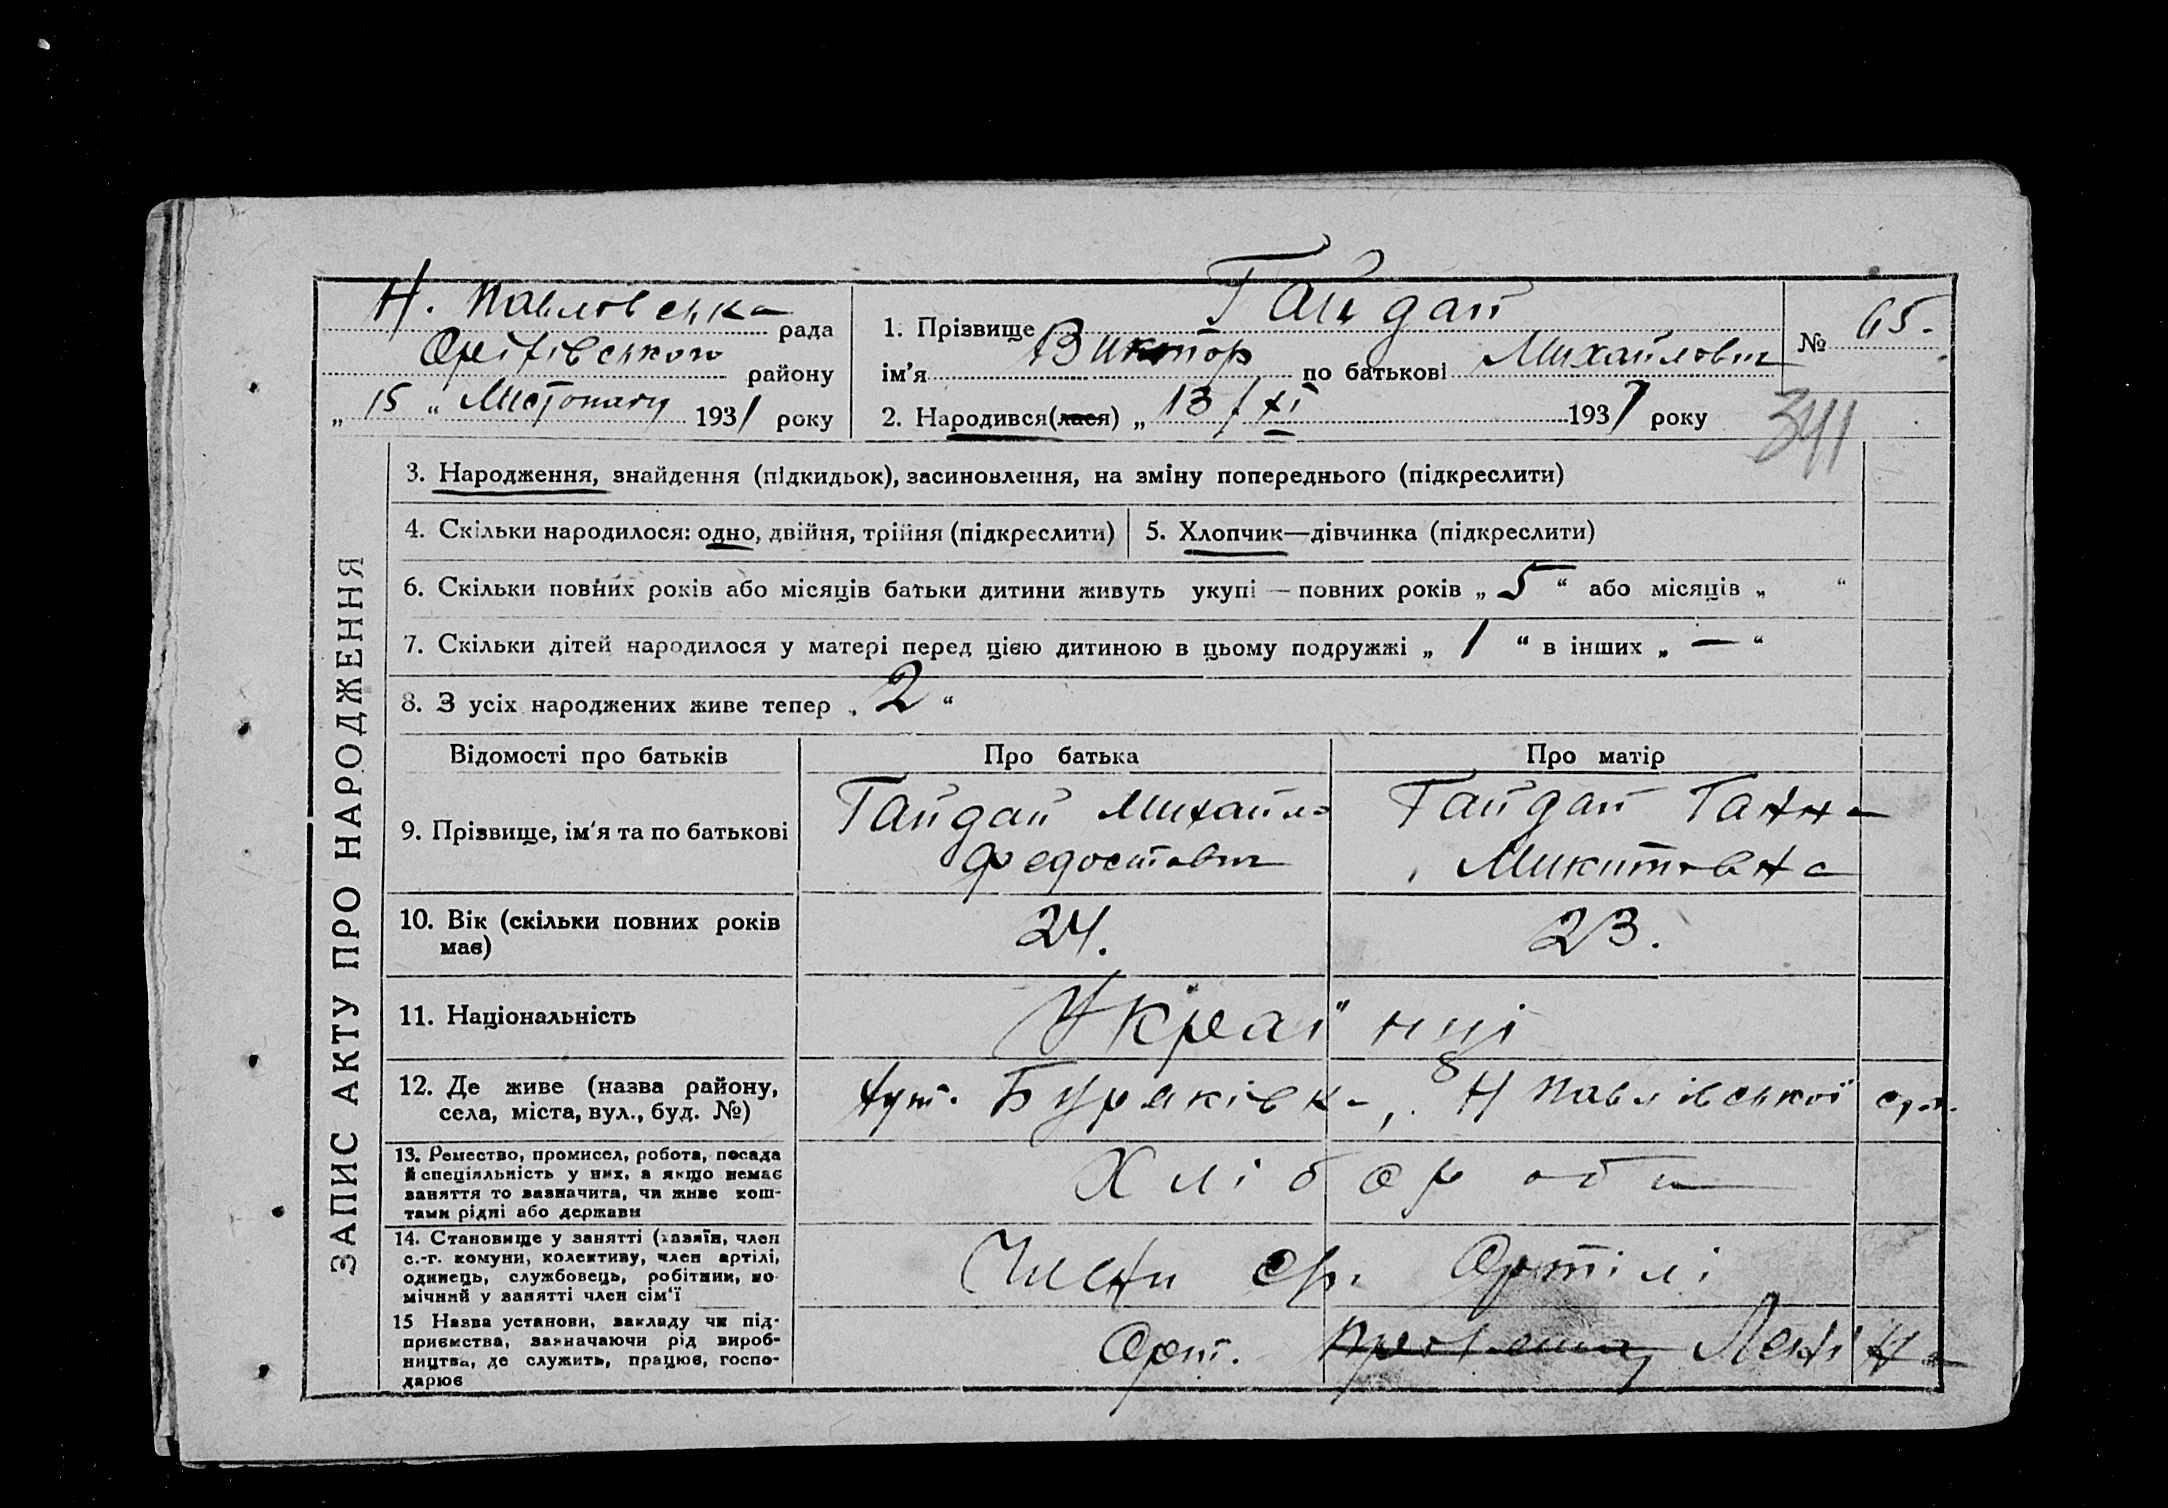 Н. Павловська рада
Оріхівського району
„ 15 “ Листопаду 1931 року
1. Прізвище Гайдай
ім'я Виктор по батькові Михайлович
2. Народився(лася) „ 13/XI 1931 року
№ 65.
341
ЗАПИС АКТУ ПРО НАРОДЖЕННЯ
3. Народження, знайдення (підкидьок), засиновлення, на зміну попереднього (підкреслити)
4. Скільки народилося: одно, двійня, трійня (підкреслити)
5. Хлопчик—дівчинка (підкреслити)
6. Скільки повних років або місяців батьки дитини живуть укупі — повних років „ 5 “ або місяців „ “
7. Скільки дітей народилося у матері перед цією дитиною в цьому подружжі „ 1 “ в інших „ — “
8. З усіх народжених живе тепер „ 2 “
Відомості про батьків
Про батька
Про матір
9. Прізвище, ім'я та по батькові
Гайдай Михайло
Федостович
Гайдай Ганна
Микитовна
10. Вік (скільки повних років
має)
24.
23.
11. Національність
Українці
12. Де живе (назва району,
села, міста, вул., буд. №)
хут. Буряківка, Н Павлівської с/р.
13. Ремество, промисел, робота, посада
й спеціяльність у них, а якщо немає
заняття то зазначити, чи живе кош-
тами рідні або держави
Хлібороби
14. Становище у занятті (хазяїн, член
с.-г. комуни, колективу, член артілі,
одинець, службовець, робітник, по-
мічний у занятті член сім'ї
Члени ср. Артілі
15 Назва установи, закладу чи під-
приємства, зазначаючи рід вироб-
ництва, де служить, працює, госпо-
дарює
Арт. Леніна